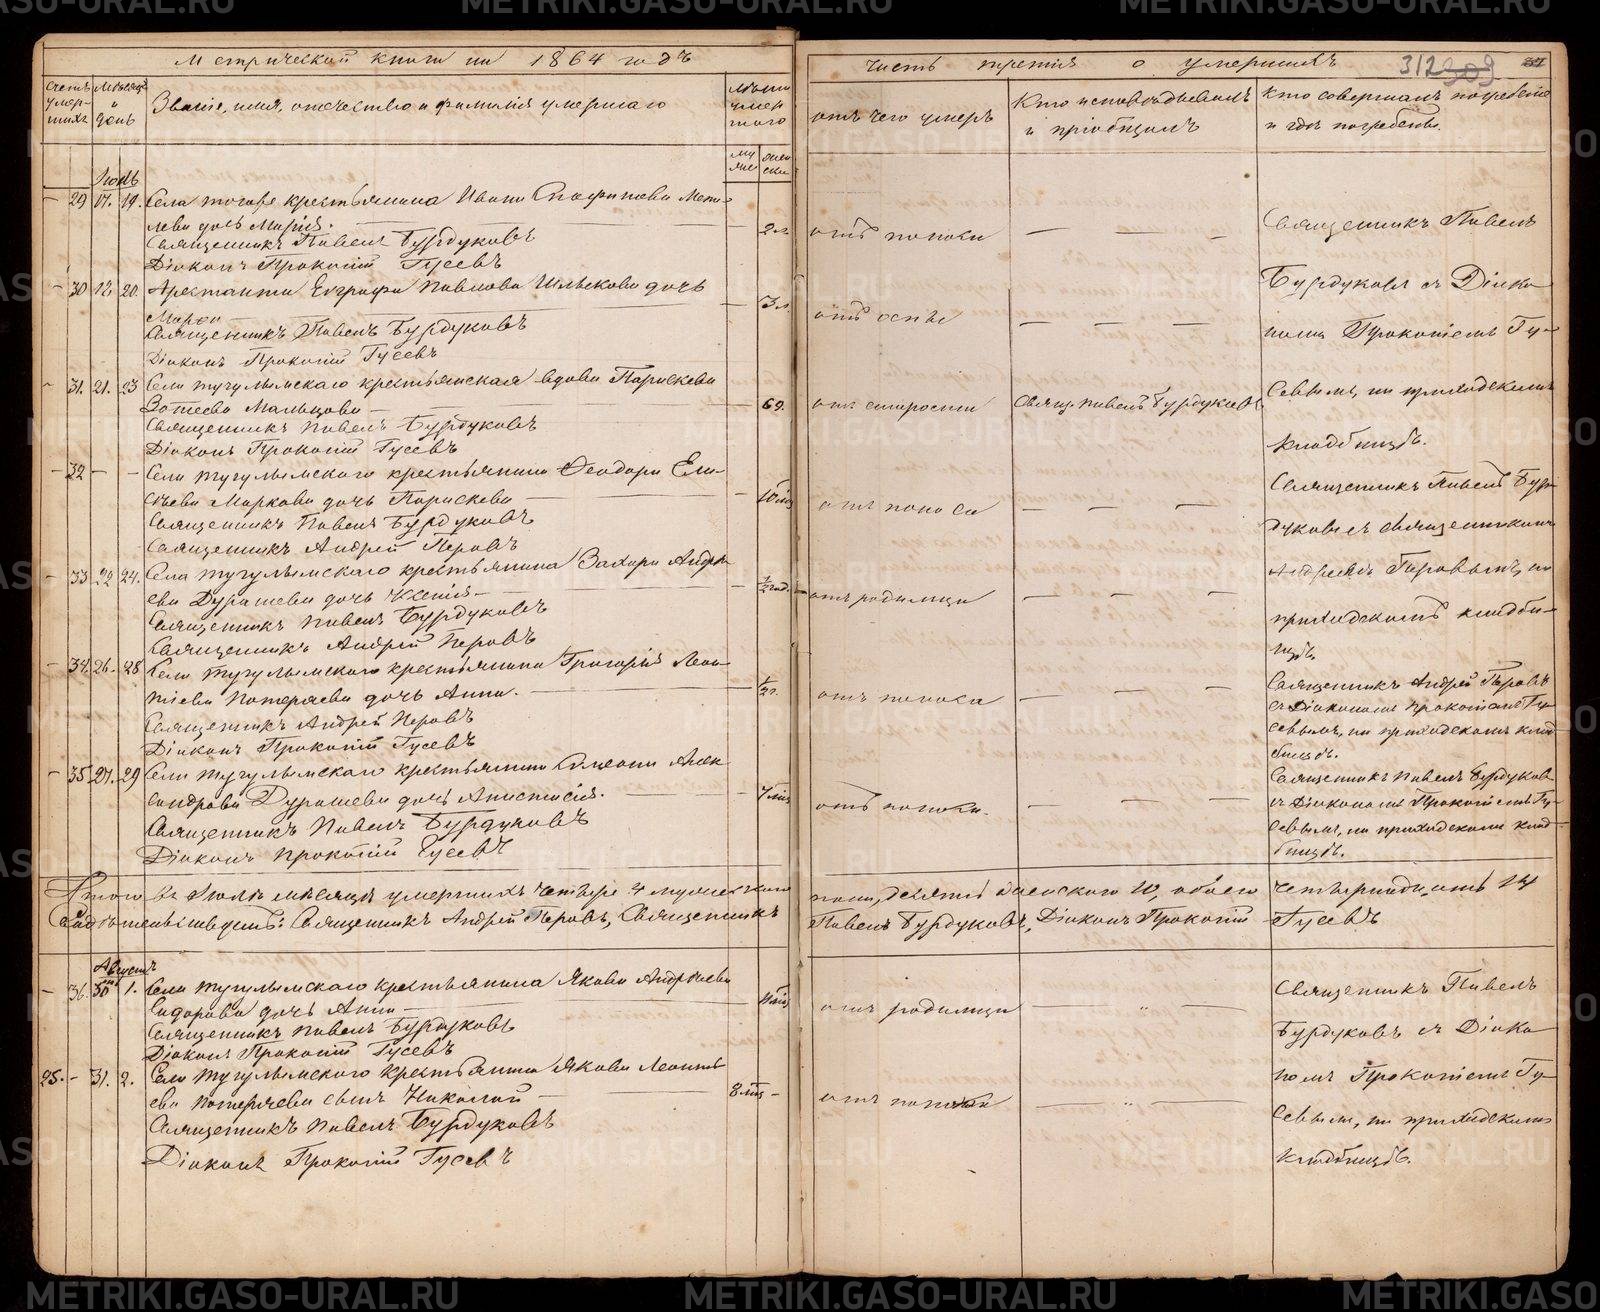 Метрической книги на 1864 годъ
Счетъ умер-шихъ
Мѣсяцъ и день
Званіе, имя, отчество и фамилія умершаго
Лѣта умер-шаго
муж
женски
Іюль
29 17. 19. Села тогоже крестьянина Ивана
лева дочь Марія. 2 л.
Священникъ Павелъ Бурдуковъ
Діаконъ Прокопій Гусевъ
30 18 20. Арестанта Евграфа Павлова дочь
3 л.
Священникъ Павелъ Бурдуковъ
Діаконъ Прокопій Гусевъ
31. 21. 23 Села тугулымскаго крестьянская вдова Параскева
Зотеева Мальцова 69.
Священникъ Павелъ Бурдуковъ
Діаконъ Прокопій Гусевъ
32 Села тугулымскаго крестьянина Ѳеодора Ели-
сѣева Маркова дочь Параскева
Священникъ Павелъ Бурдуковъ
Священникъ Андрей Перовъ
33 22 24. Села тугулымскаго крестьянина Захара Андре
ева Дурашева дочь Ксенія 1/2 год.
Священникъ Павелъ Бурдуковъ
Священникъ Андрей Перовъ
34. 26. 28 Села тугулымскаго крестьянина Григорія Леон
тіева Потеряева дочь Анна. 1/2 г.
Священникъ Андрей Перовъ
Діаконъ Прокопій Гусевъ
35 27. 29 Села тугулымскаго крестьянина Симеона Алек
сандрова Дурашева дочь Анастасія. 7 мѣс
Священникъ Павелъ Бурдуковъ
Діаконъ Прокопій Гусевъ
Итого въ Іюлѣ мѣсяцѣ умершихъ четыре 4 мужескаго
Свидѣтельствуемъ: Священникъ Андрей Перовъ, Священникъ
Августъ
36. 30 1. Села тугулымскаго крестьянина Якова Андреева
Сидорова дочь Анна
Священникъ Павелъ Бурдуковъ
Діаконъ Прокопій Гусевъ
25. 31. 2. Села тугулымскаго крестьянина Якова Леонть
ева Потеряева сынъ Николай 8 мѣс
Священникъ Павелъ Бурдуковъ
Діаконъ Прокопій Гусевъ
часть третія о умершихъ 312
отъ чего умеръ
Кто исповѣдывалъ и пріобщалъ
Кто совершалъ погребеніе и гдѣ погребены.
отъ поноса
отъ оспы
отъ старости Свящ. Павелъ Бурдуковъ
отъ поноса
отъ родимца
отъ поноса
отъ поноса.
Священникъ Павелъ
Бурдуковъ съ Діако
номъ Прокопіемъ Гу-
севымъ, на приходскомъ
кладбищѣ.
Священникъ Павелъ Бур
дуковъ съ священникомъ
Андреемъ Перовымъ, на
приходскомъ кладби-
щѣ.
Священникъ Андрей Перовъ
съ Діакономъ Прокопіемъ Гу
севымъ, на приходскомъ клад
бищѣ.
Священникъ Павелъ Бурдуковъ
съ Діакономъ Прокопіемъ Гу-
севымъ, на приходскомъ клад
бищѣ.
пола, десять женскаго 10, обоего четырнадцать 14
Павелъ Бурдуковъ, Діаконъ Прокопій Гусевъ
отъ родимца
отъ поноса
Священникъ Павелъ
Бурдуковъ съ Діако
номъ Прокопіемъ Гу-
севымъ, на приходскомъ
кладбищѣ.
METRIKI.GASO-URAL.RU